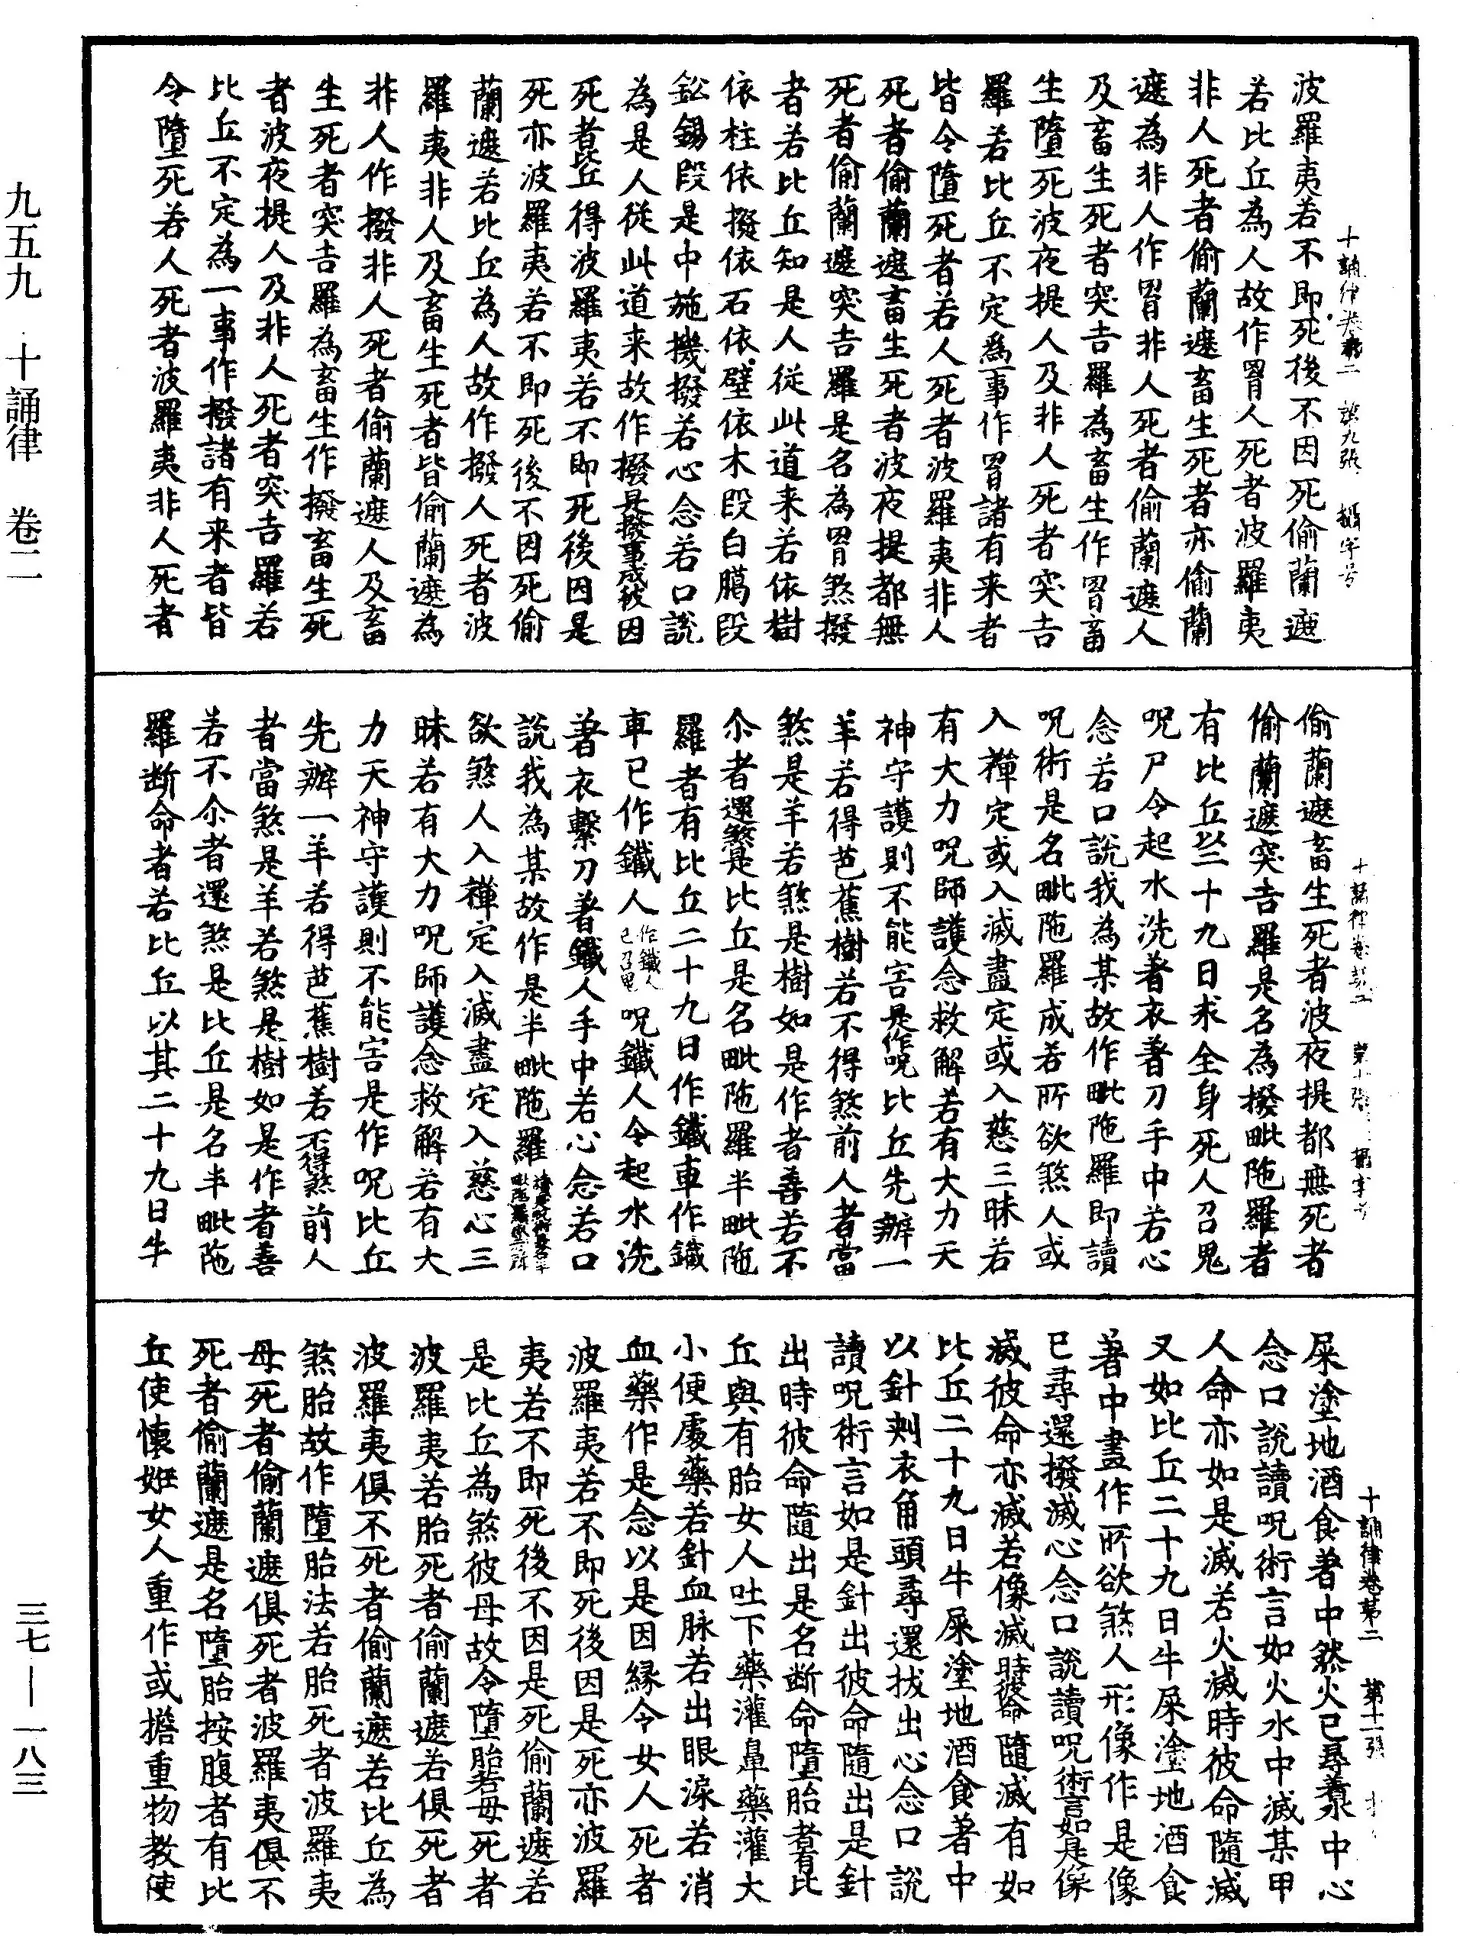 波羅夷若不即死後不因死偷蘭遮
若比丘為人故作罥人死者波羅夷
非人死者偷蘭遮畜生死者亦偷蘭
遮為非人作罥非人死者偷蘭遮人
及畜生死者突吉羅為畜生作罥畜
生墮死波夜提人及非人死者突吉
羅若比丘不定為一事作罥諸有來者
皆令墮死者若人死者波羅夷非人
死者偷蘭遮畜生死者波夜提都無
死者偷蘭遮突吉羅是名為罥煞撥
者若比丘知是人從此道来若依樹
依柱依撥依石依壁依木段白膓段
鈆錫段是中施機撥若心念若口說
為是人從此道来故作撥是撥事成彼因
死者比丘得波羅夷若不即死後因是
死亦波羅夷若不即死後不因死偷
蘭遮若比丘為人故作撥人死者波
羅夷非人及畜生死者皆偷蘭遮為
非人作撥非人死者偷蘭遮人及畜
生死者突吉羅為畜生作撥畜生死
者波夜提人及非人死者突吉羅若
比丘不定為一事作撥諸有来者皆
令墮死若人死者波羅夷非人死者
十誦律卷第二 第九張 攝字号
偷蘭遮畜生死者波夜提都無死者
偷蘭遮突吉羅是名為撥毗陁羅者
有比丘以二十九日求全身死人召鬼
呪尸令起水洗著衣著刀手中若心
念若口說我為某故作毗陁羅即讀
呪術是名毗陁羅成若所欲煞人或
入禪定或入滅盡定或入慈三昧若
有大力呪師護念救解若有大力天
神守護則不能害是作呪比丘先辦一
羊若得芭蕉樹若不得煞前人者當
煞是羊若煞是樹如是作者善若不
尒者還煞是比丘是名毗陁羅半毗陁
羅者有比丘二十九日作鐵車作鐵
車已作鐵人作鐵人已召鬼呪鐵人令起水洗
著衣繫刀著鐵人手中若心念若口
說我為某故作是半毗陁羅
欲煞人入禪定入滅盡定入慈心三
昧若有大力呪師護念救解若有大
力天神守護則不能害是作呪比丘
先辦一羊若得芭蕉樹若不得煞前人
者當煞是羊若煞是樹如是作者善
若不尒者還煞是比丘是名半毗陁
羅斷命者若比丘以其二十九日牛
十誦律卷第二 第十張 攝字号
屎塗地酒食著中然火已尋著水中心
念口說讀呪術言如火水中滅某甲
人命亦如是滅若火滅時彼命隨滅
又如比丘二十九日牛屎塗地酒食
著中畫作所欲煞人形像作是像
已尋還撥滅心念口說讀呪術言如是像
滅彼命亦滅若像滅時彼命隨滅有如
比丘二十九日牛屎塗地酒食著中
以針刾衣角頭尋還拔出心念口說
讀呪術言如是針出彼命隨出是針
出時彼命隨出是名斷命墮胎者有比
丘與有胎女人吐下藥灌鼻藥灌大
小便處藥若針血脉若出眼淚若消
血藥作是念以是因緣令女人死者
波羅夷若不即死後因是死亦波羅
夷若不即死後不因是死偷蘭遮若
是比丘為煞彼母故令墮胎若母死者
波羅夷若胎死者偷蘭遮若俱死者
波羅夷俱不死者偷蘭遮若比丘為
煞胎故作墮胎法若胎死者波羅夷
母死者偷蘭遮俱死者波羅夷俱不
死者偷蘭遮是名墮胎按腹者有比
丘使懷姙女人重作或擔重物教使
十誦律卷第二 第十一張
九五九 十誦律 卷二
三七—一八三